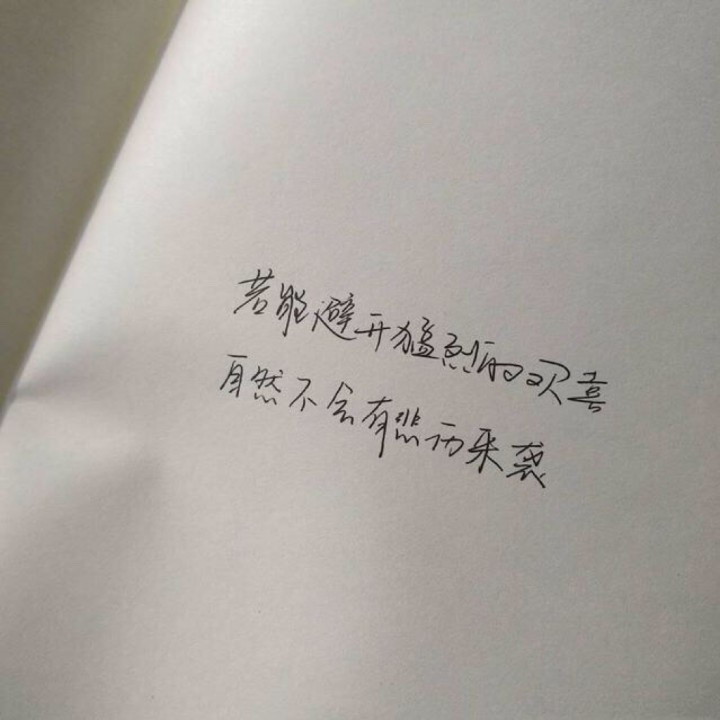 若能避开猛烈的欢喜
自然不会有悲伤来袭